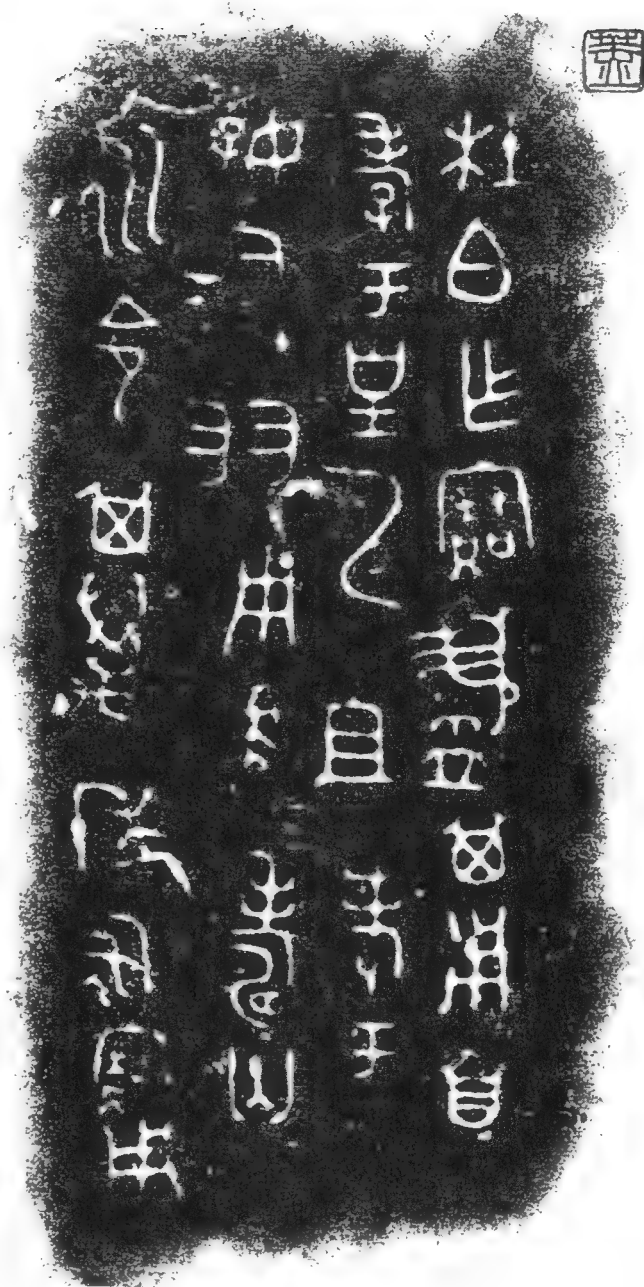 杜白乍寶盨其用享
孝于皇申且考于
好倗友用𠦪壽匄
永令其萬年永寶用